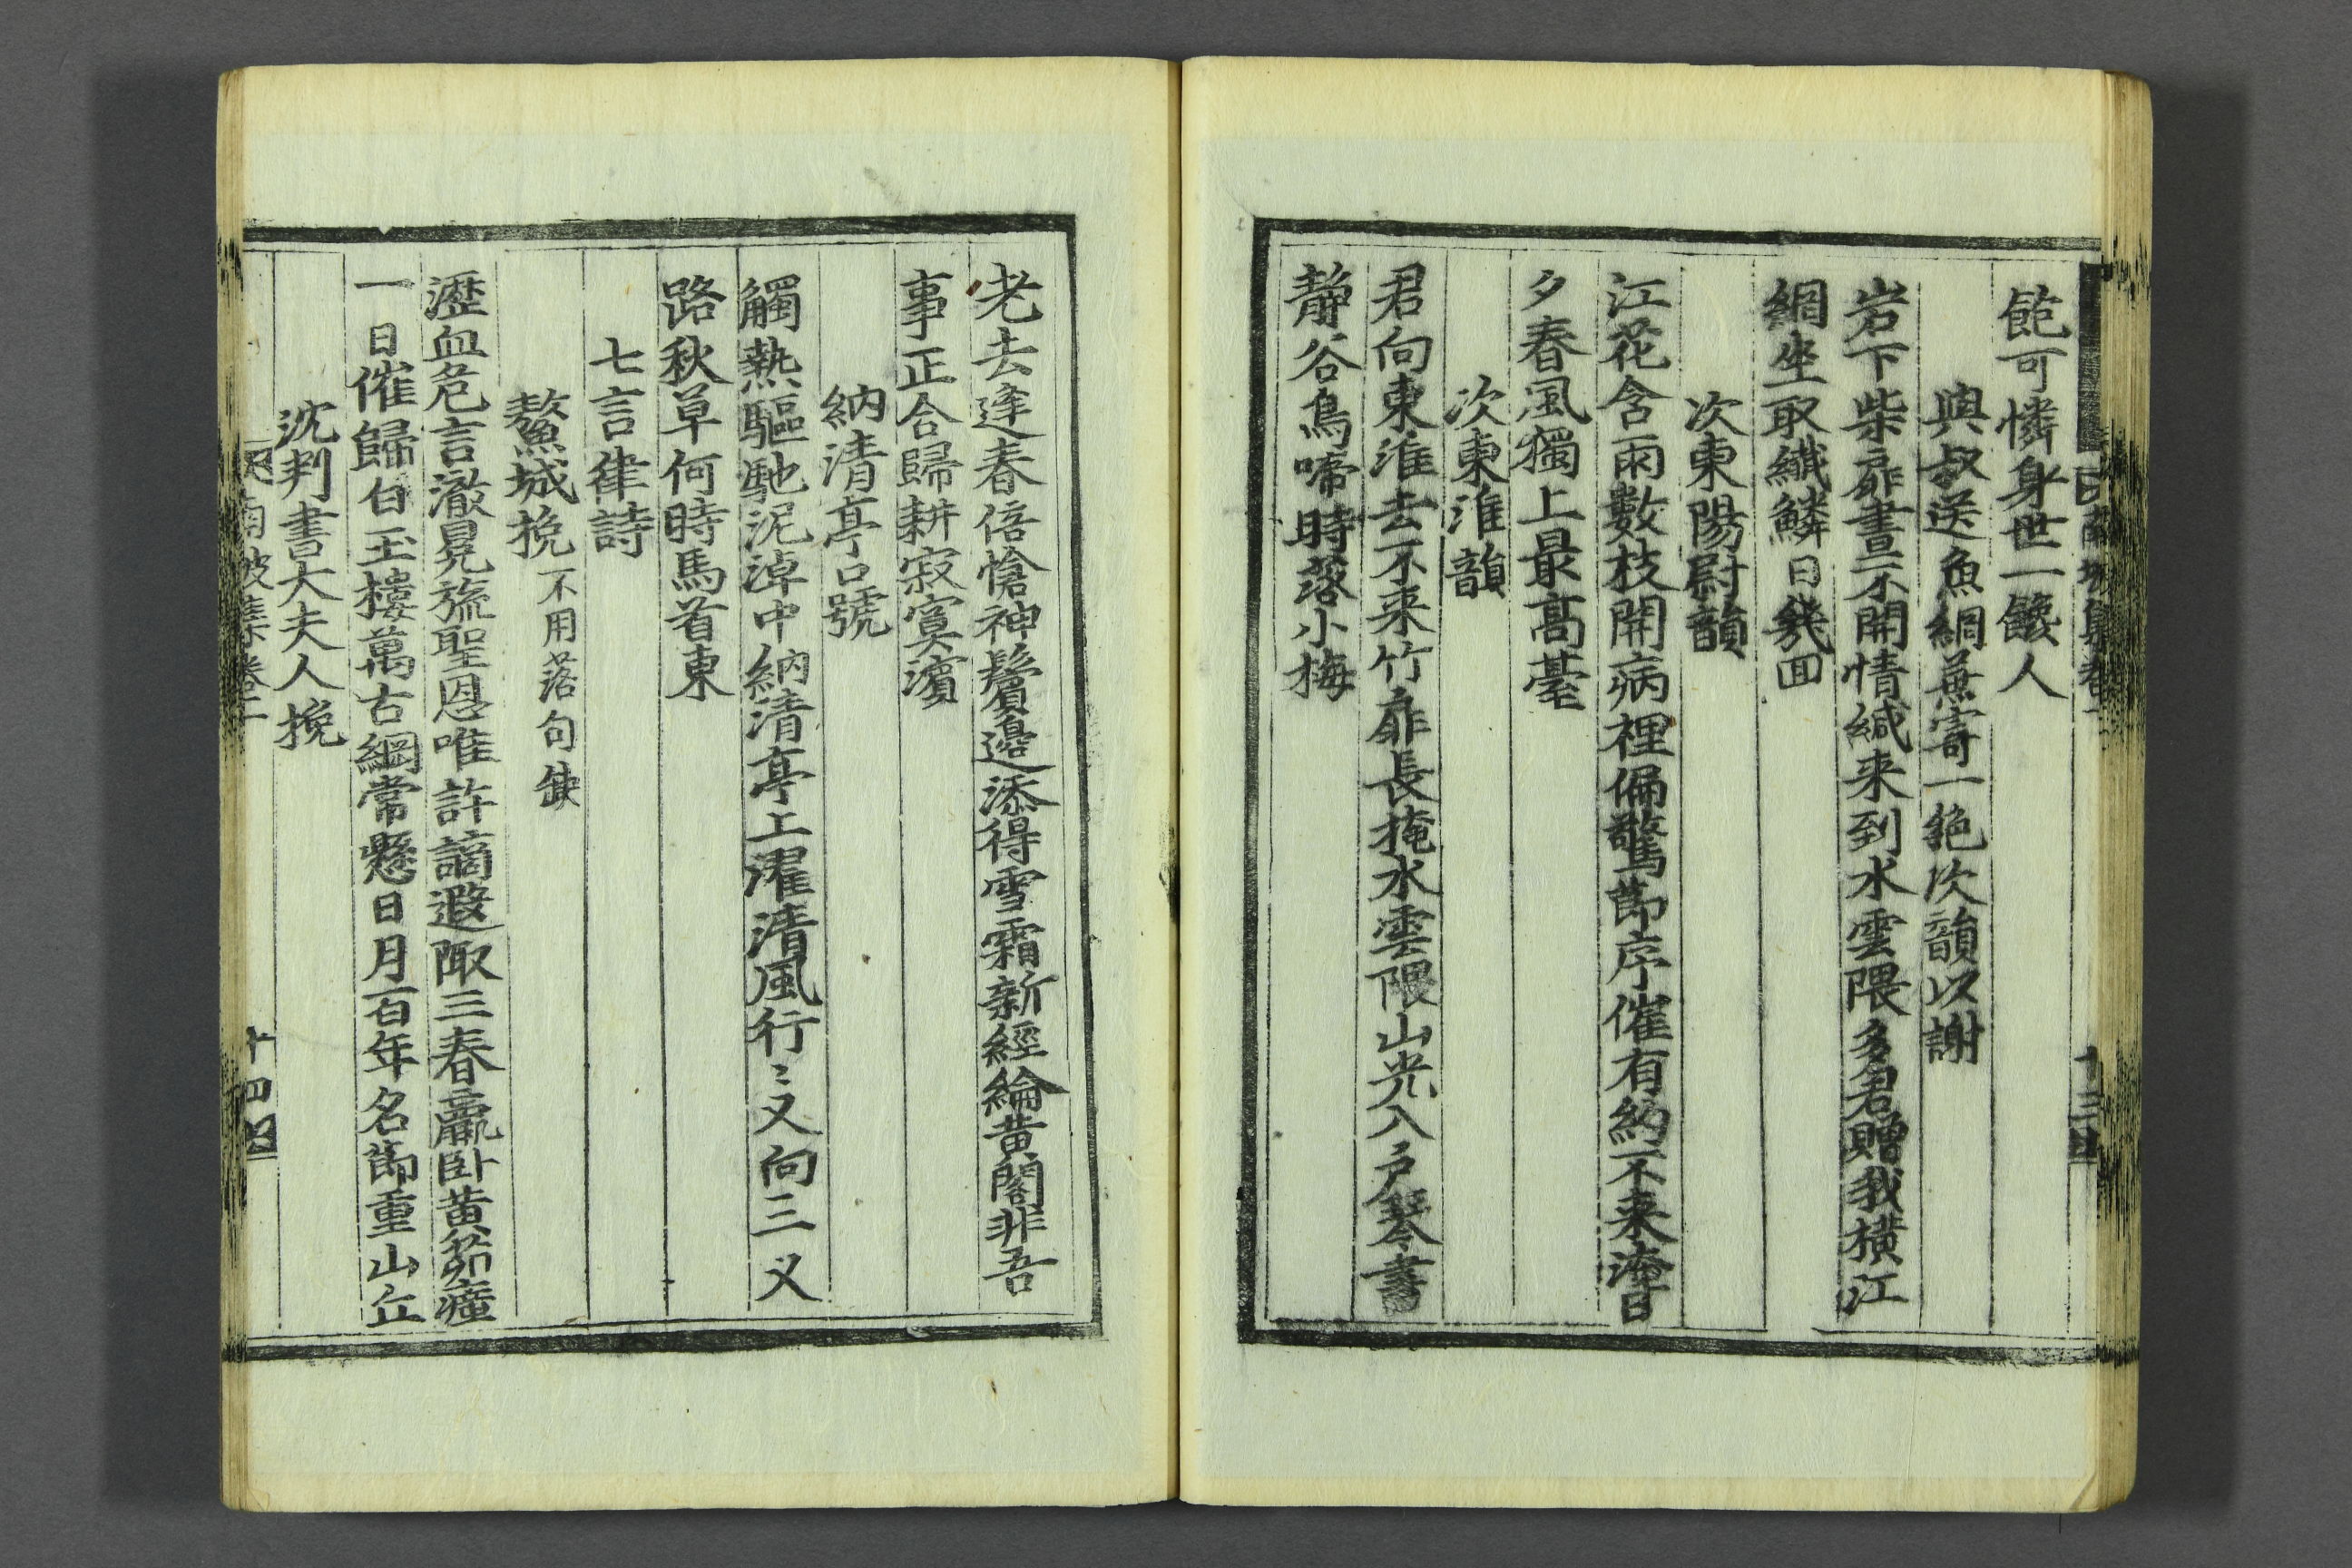 飽可憐身世一饞人
與叔送魚網兼寄一絶次韻以謝
岩下柴扉晝不開情緘来到水雲隈多君贈我横江
網坐取纎鱗日幾回
次東陽尉韻
江花含雨數枝開病裡偏驚節序催有約不来淹日
夕春風獨上最高䑓
次東淮韻
君向東淮去不来竹扉長掩水雲隈山光入戸琴書
静谷鳥啼時落小梅
老去逢春倍愴神鬢邉添得雪霜新經綸黄閣非吾
事正合歸耕寂寞濱
納清亭口號
觸熱驅馳泥淖中納清亭上濯清風行〻又向三叉
路秋草何時馬首東
七言律詩
鰲城挽不用落句缺
瀝血危言澈冕旒聖恩唯許謫遐陬三春羸卧黄茆瘴
一日催歸白玉樓萬古綱常懸日月百年名節重山丘
沈判書大夫人挽
南坡集卷二
十四